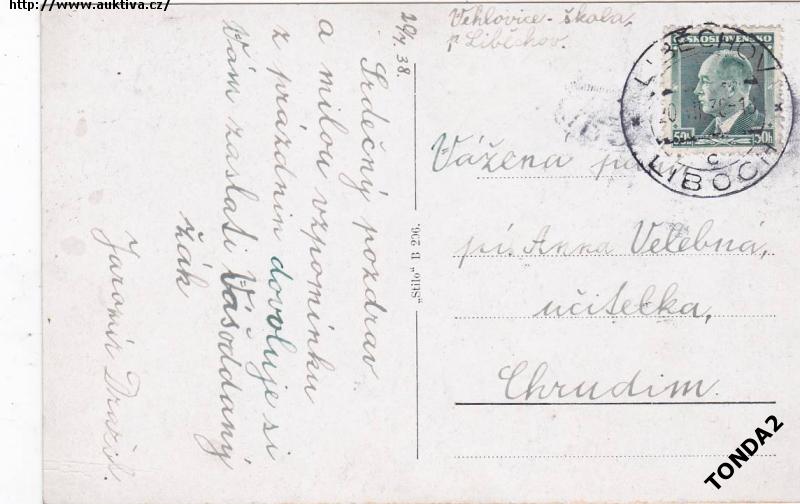 http://www.auktiva.cz/
29/7.38.
Srdečný pozdrav
a milou vzpomínku
z prázdnin dovoluje si
Vám zaslati Váš oddaný
žák
Jaromír Dražil.
"Stilo" B 296.
Vehlovice - škola,
p Liběchov.
ČESKOSLOVENSKO
50h 50h
LIBĚCHOV
LIBOCH
Vážená
pí. Anna Velebná,
učitelka,
Chrudim.
TONDA2